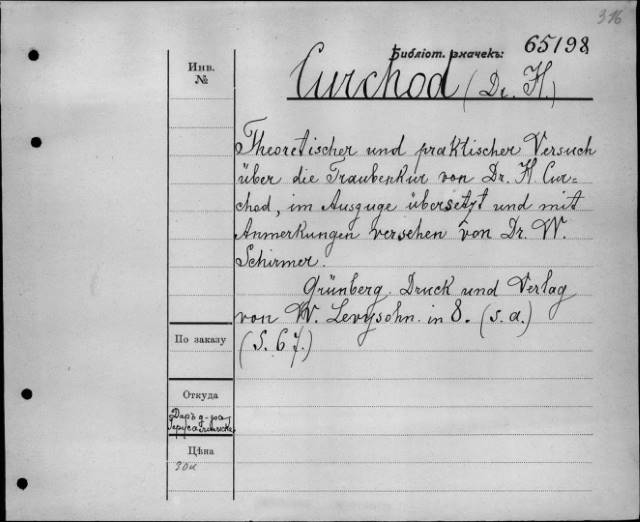 316
Библіот. значекъ: 65198
Инв.
№
Curchod (Dr. H.)
Theoretischer und praktischer Versuch
über die Traubenkur von Dr. H. Cur=
chod, im Auszuge übersetzt und mit
Anmerkungen versehen von Dr. W.
Schirmer.
Grünberg. Druck und Verlag
von W. Levysohn. in 8. (s. a.)
(S. 67.)
По заказу
Откуда
Даръ д-ра
Цѣна
30к